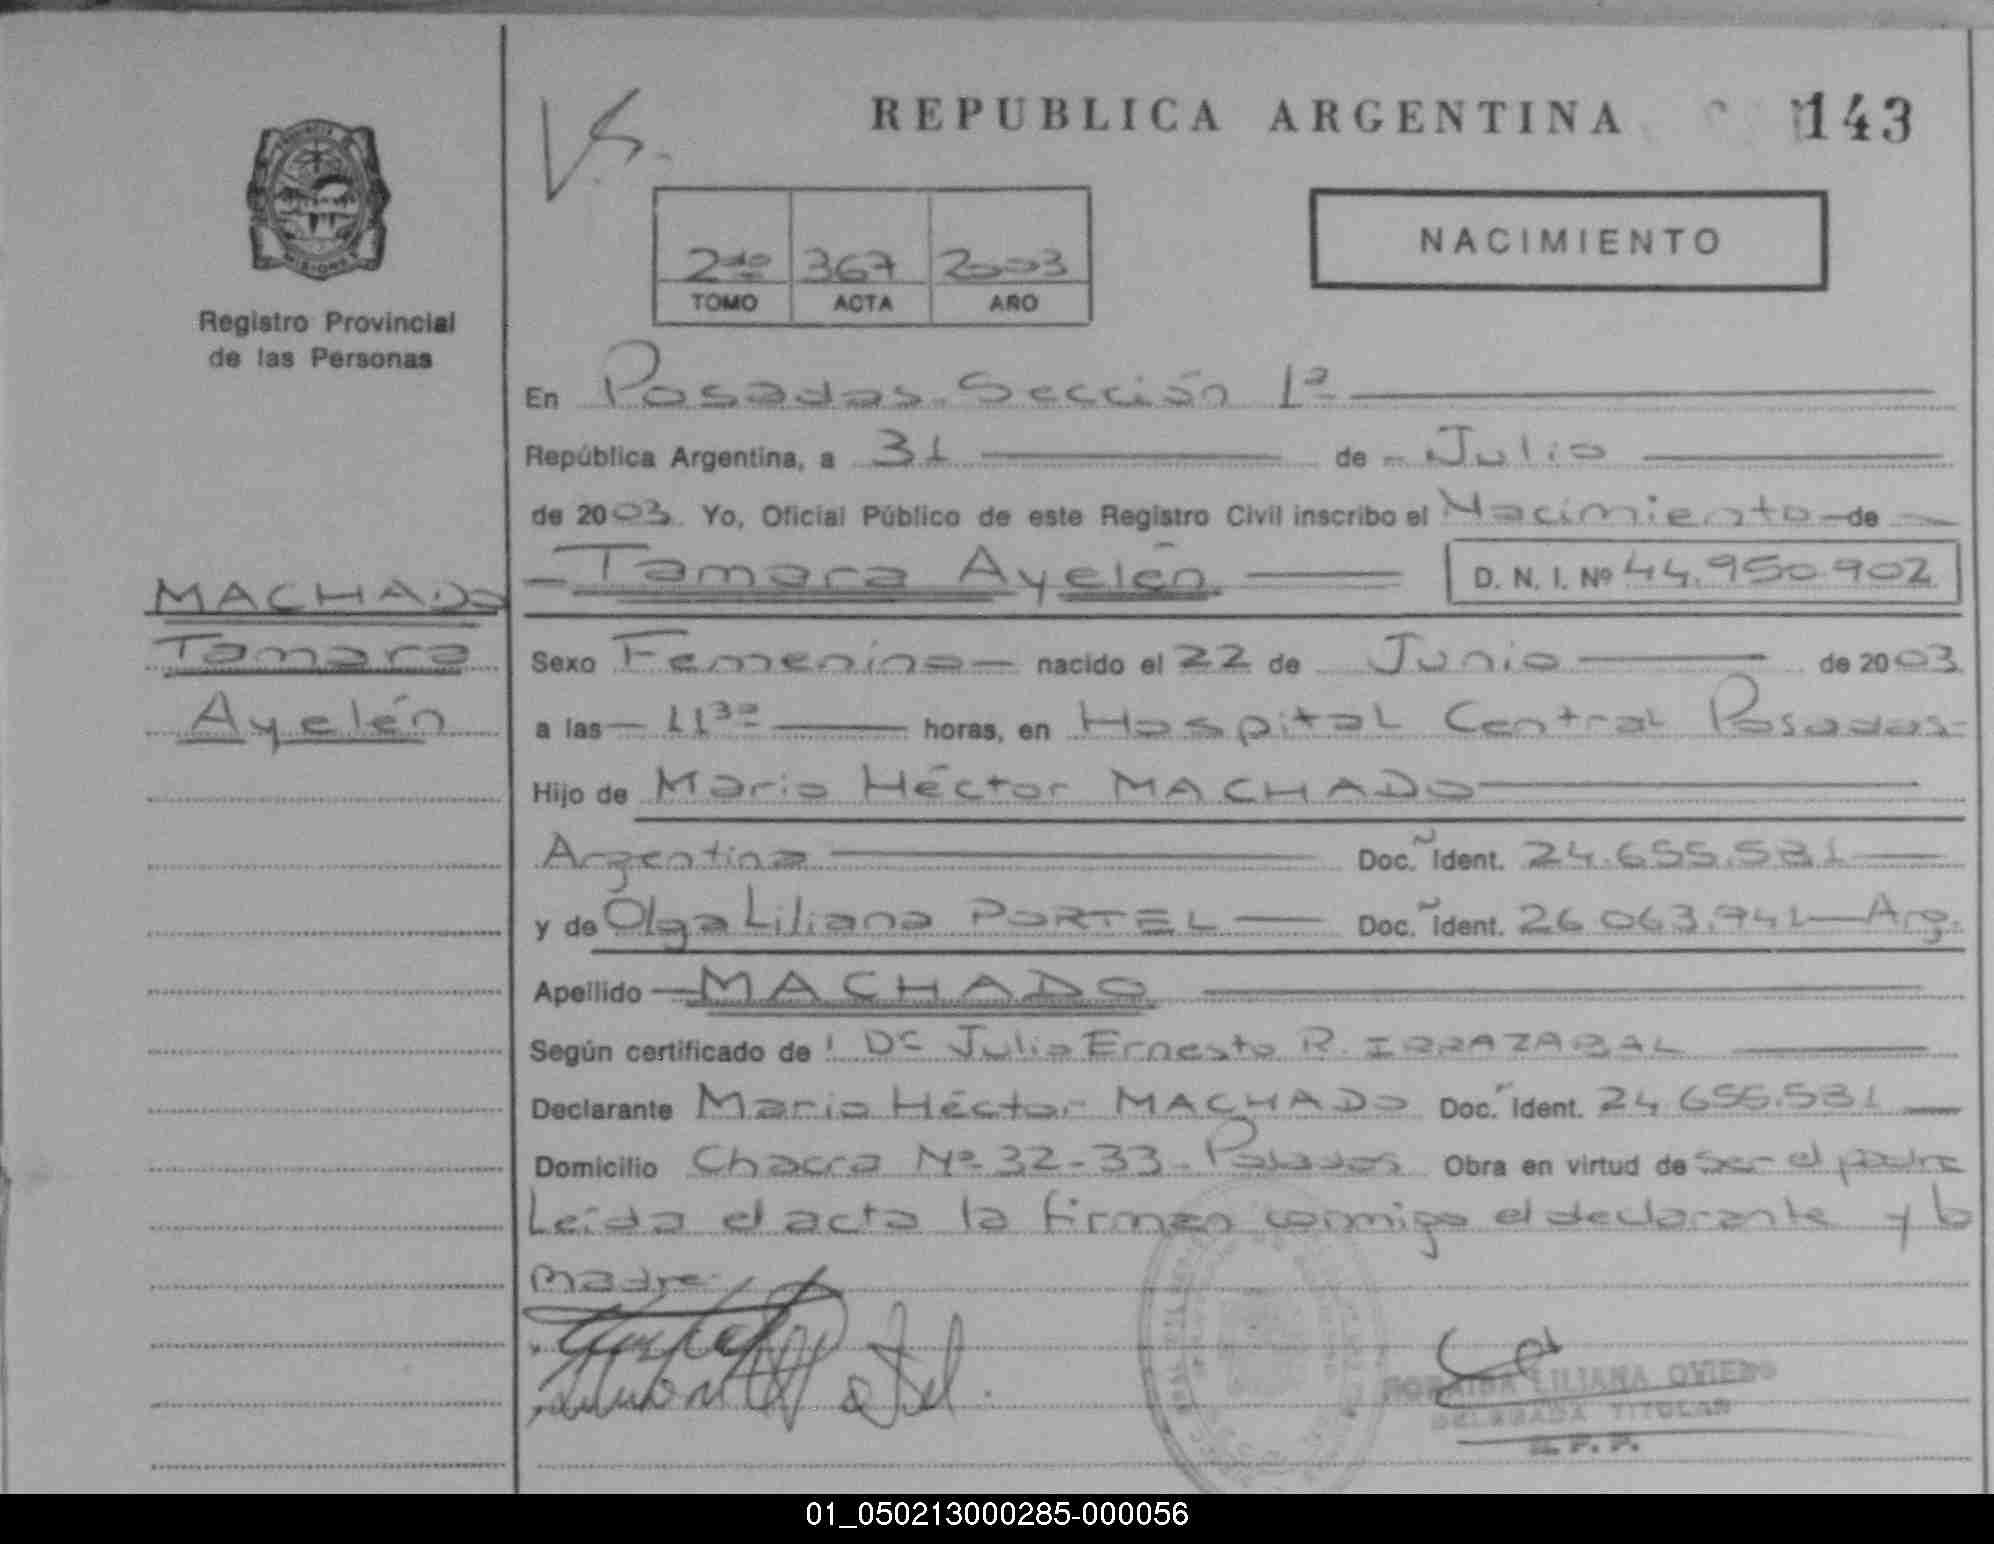 REPUBLICA ARGENTINA
143
VS.
MISIONES
Registro Provincial
de las Personas
2do 367 2003
TOMO ACTA AÑO
NACIMIENTO
En Posadas - Sección 1ª
República Argentina, a 31 de Julio
de 2003. Yo, Oficial Público de este Registro Civil inscribo el Nacimiento de
Tamara Ayelén D. N. I. Nº 44.950.902
MACHADO
Tamara
Ayelén
Sexo Femenino nacido el 22 de Junio de 2003
a las 11 30 horas, en Hospital Central Posadas
Hijo de Mario Héctor MACHADO
Argentina Doc. Ident. 24.655.531
y de Olga Liliana PORTEL Doc. Ident. 26.063.941 Arg.
Apellido MACHADO
Según certificado de Dr Julio Ernesto R. IRRAZABAL
Declarante Mario Héctor MACHADO Doc. Ident. 24.655.531
Domicilio Chacra Nº 32-33 - Posadas Obra en virtud de ser el padre
Leída el acta la firman conmigo el declarante y la
madre.
LILIANA OVIEDO
DELEGADA TITULAR
R. P. P.
01_050213000285-000056